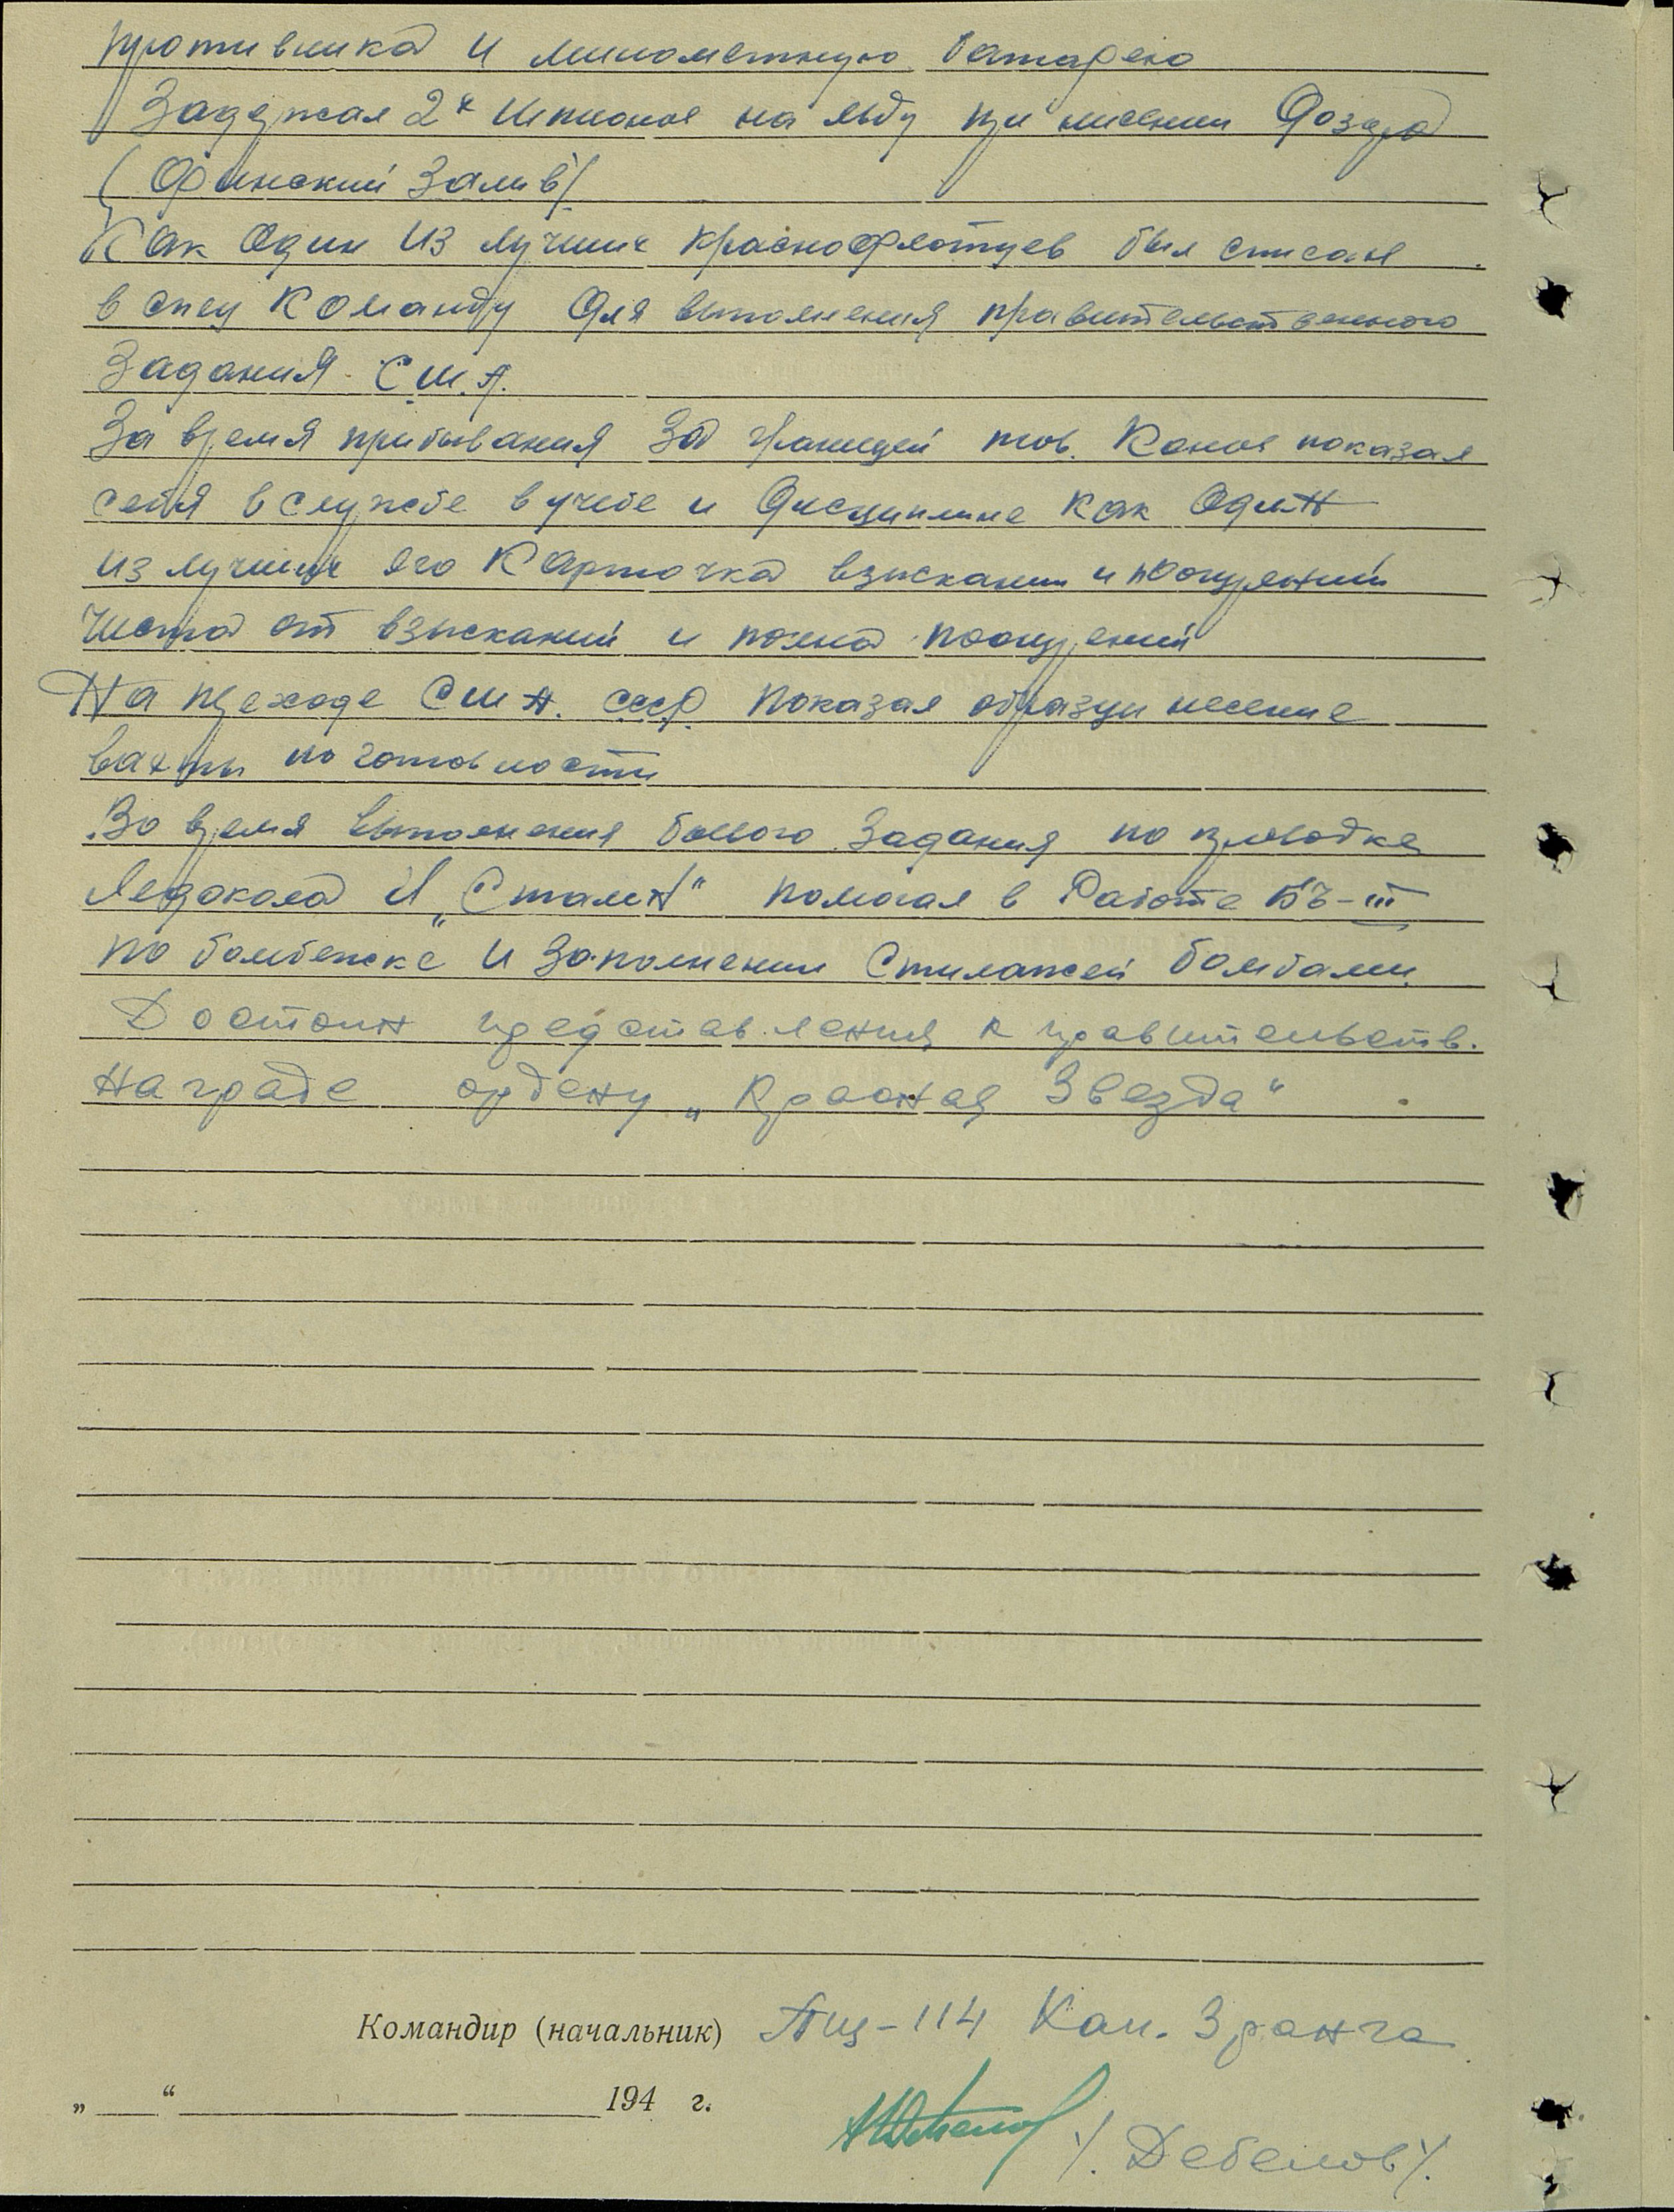 противника и минометную батарею
Задержал 2х шпионов на льду при нисении Дозора
(Финский Залив)
Как один из лучших краснофлотцев был списан
в спец команду для выполнения правительственного
Задания США.
За время прибывания за границей тов. Конов показал
себя в службе в учебе и дисциплине как один
из лучших его карточка взыскании и поощрений
чиста от взысканий и полна поощрений
На переходе США. СССР показал образцы несение
вахты по готовности
Во время выполнения боевого задания по проводке
Ледокола И „Сталин“ помогал в работе БЧ-III
по бомбежке и заполнении Стилажей бомбами.
Достоин представления к правительств.
награде ордену „Красная Звезда“
Командир (начальник) Кап. 3 ранга
„ “ 194 г.
/. Дебелов /.